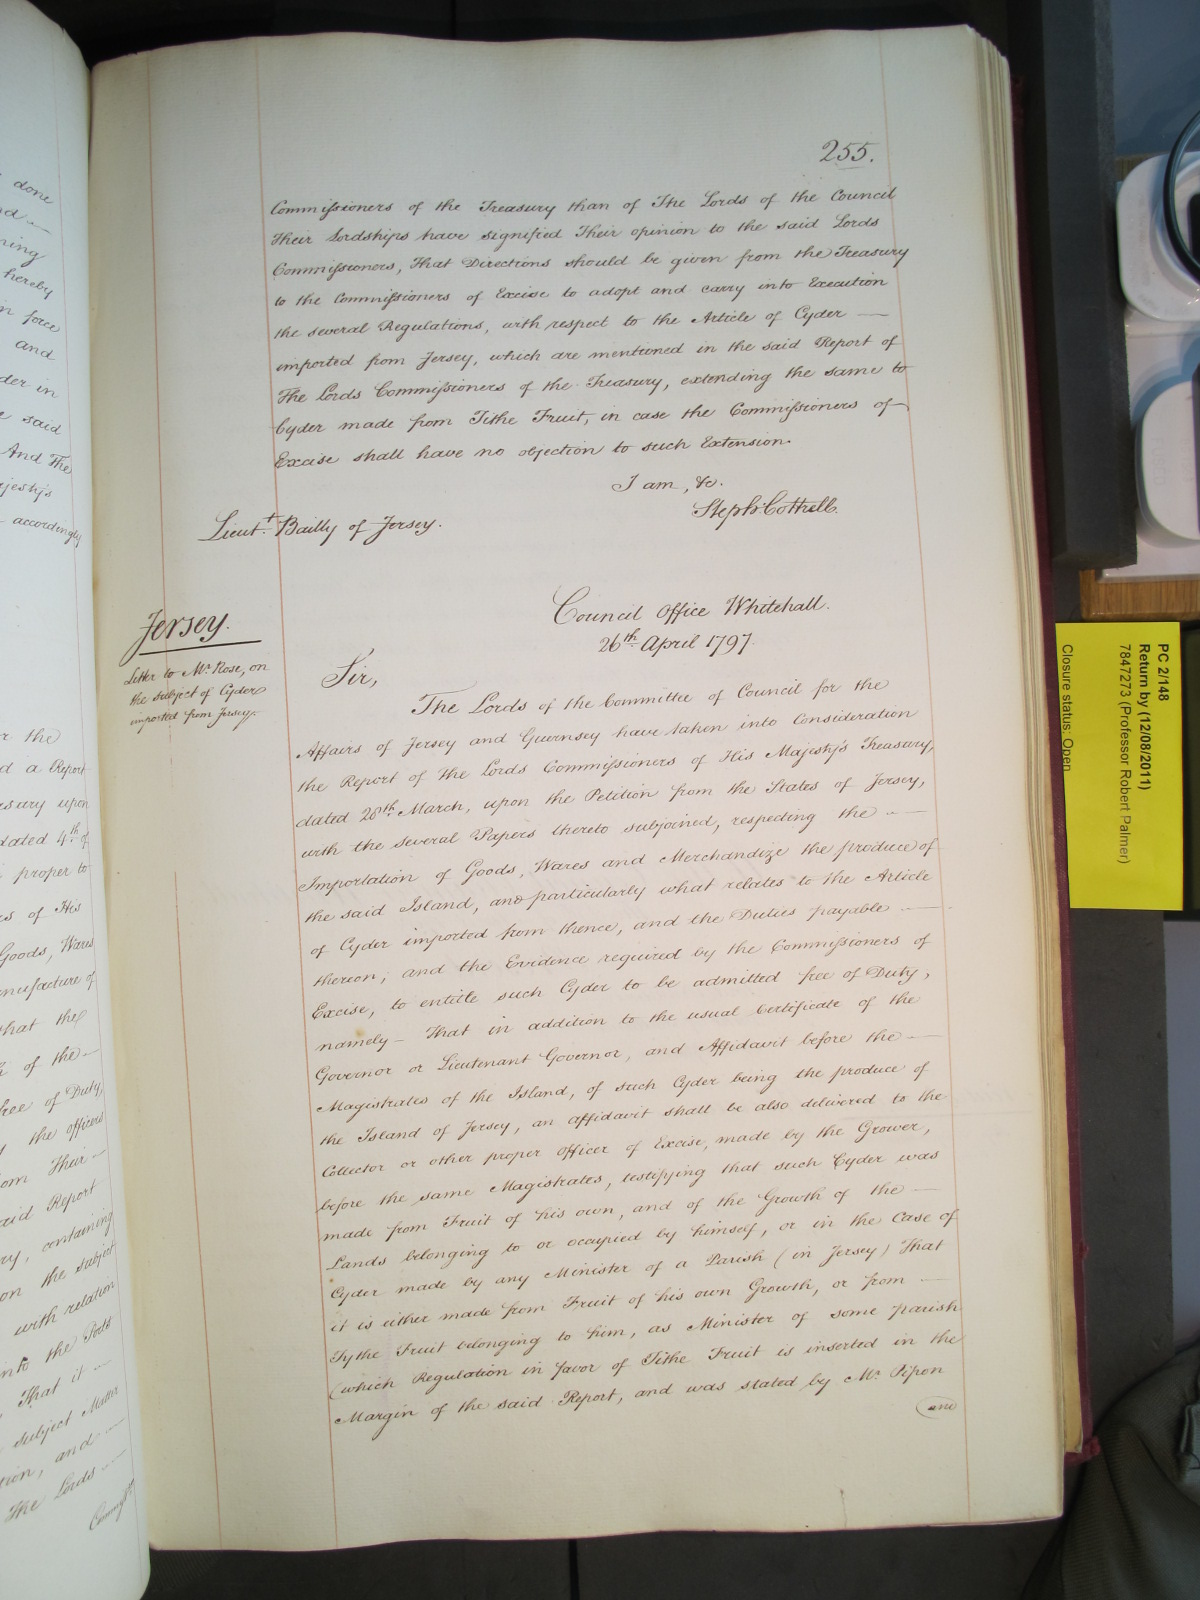 255.
Commissioners of the Treasury than of The Lords of the Council
Their Lordships have signified Their opinion to the said Lords
Commissioners, That Directions should be given from the Treasury
to the Commissioners of Excise to adopt and carry into Execution
the several Regulations, with respect to the Article of Cyder —
imported from Jersey, which are mentioned in the said Report of
The Lords Commissioners of the Treasury, extending the same to
Cyder made from Tithe Fruit, in case the Commissioners of
Excise shall have no objection to such Extension.
I am, &c.
Steph: Cottrell.
Lieut.t Bailly of Jersey.
Jersey.
Letter to Mr. Rose, on
the subject of Cyder
imported from Jersey.
Council Office Whitehall.
26th April 1797.
Sir,
The Lords of the Committee of Council for the
Affairs of Jersey and Guernsey have taken into Consideration
the Report of The Lords Commissioners of His Majesty's Treasury,
dated 28th March, upon the Petition from the States of Jersey,
with the several Papers thereto subjoined, respecting the —
Importation of Goods, Wares and Merchandize the produce of
the said Island, and particularly what relates to the Article
of Cyder imported from thence, and the Duties payable —
thereon, and the Evidence required by the Commissioners of
Excise, to entitle such Cyder to be admitted free of Duty,
namely — That in addition to the usual Certificate of the
Governor or Lieutenant Governor, and Affidavit before the —
Magistrates of the Island, of such Cyder being the produce of
the Island of Jersey, an affidavit shall be also delivered to the
Collector or other proper Officer of Excise, made by the Grower,
before the same Magistrates, testifying that such Cyder was
made from Fruit of his own, and of the Growth of the —
Lands belonging to or occupied by himself, or in the Case of
Cyder made by any Minister of a Parish (in Jersey) That
it is either made from Fruit of his own Growth, or from —
Tythe Fruit belonging to him, as Minister of some parish
(which Regulation in favor of Tithe Fruit is inserted in the
Margin of the said Report, and was stated by Mr. Pipon
and
done
ning
hereby
force
and
der in
said
And The
jesty's
accordingly
the
d a Report
sury upon
dated 4th of
proper to
es of His
Goods, Wares
nufacture of
that the
of the —
free of Duty,
the officers
om Their —
said Report
ry, containing
on the subject
with relation
into the Ports
That it —
subject Matter
tion, and —
The Lords —
PC 2/148
Return by (12/08/2011)
7847273 (Professor Robert Palmer)
Closure status: Open